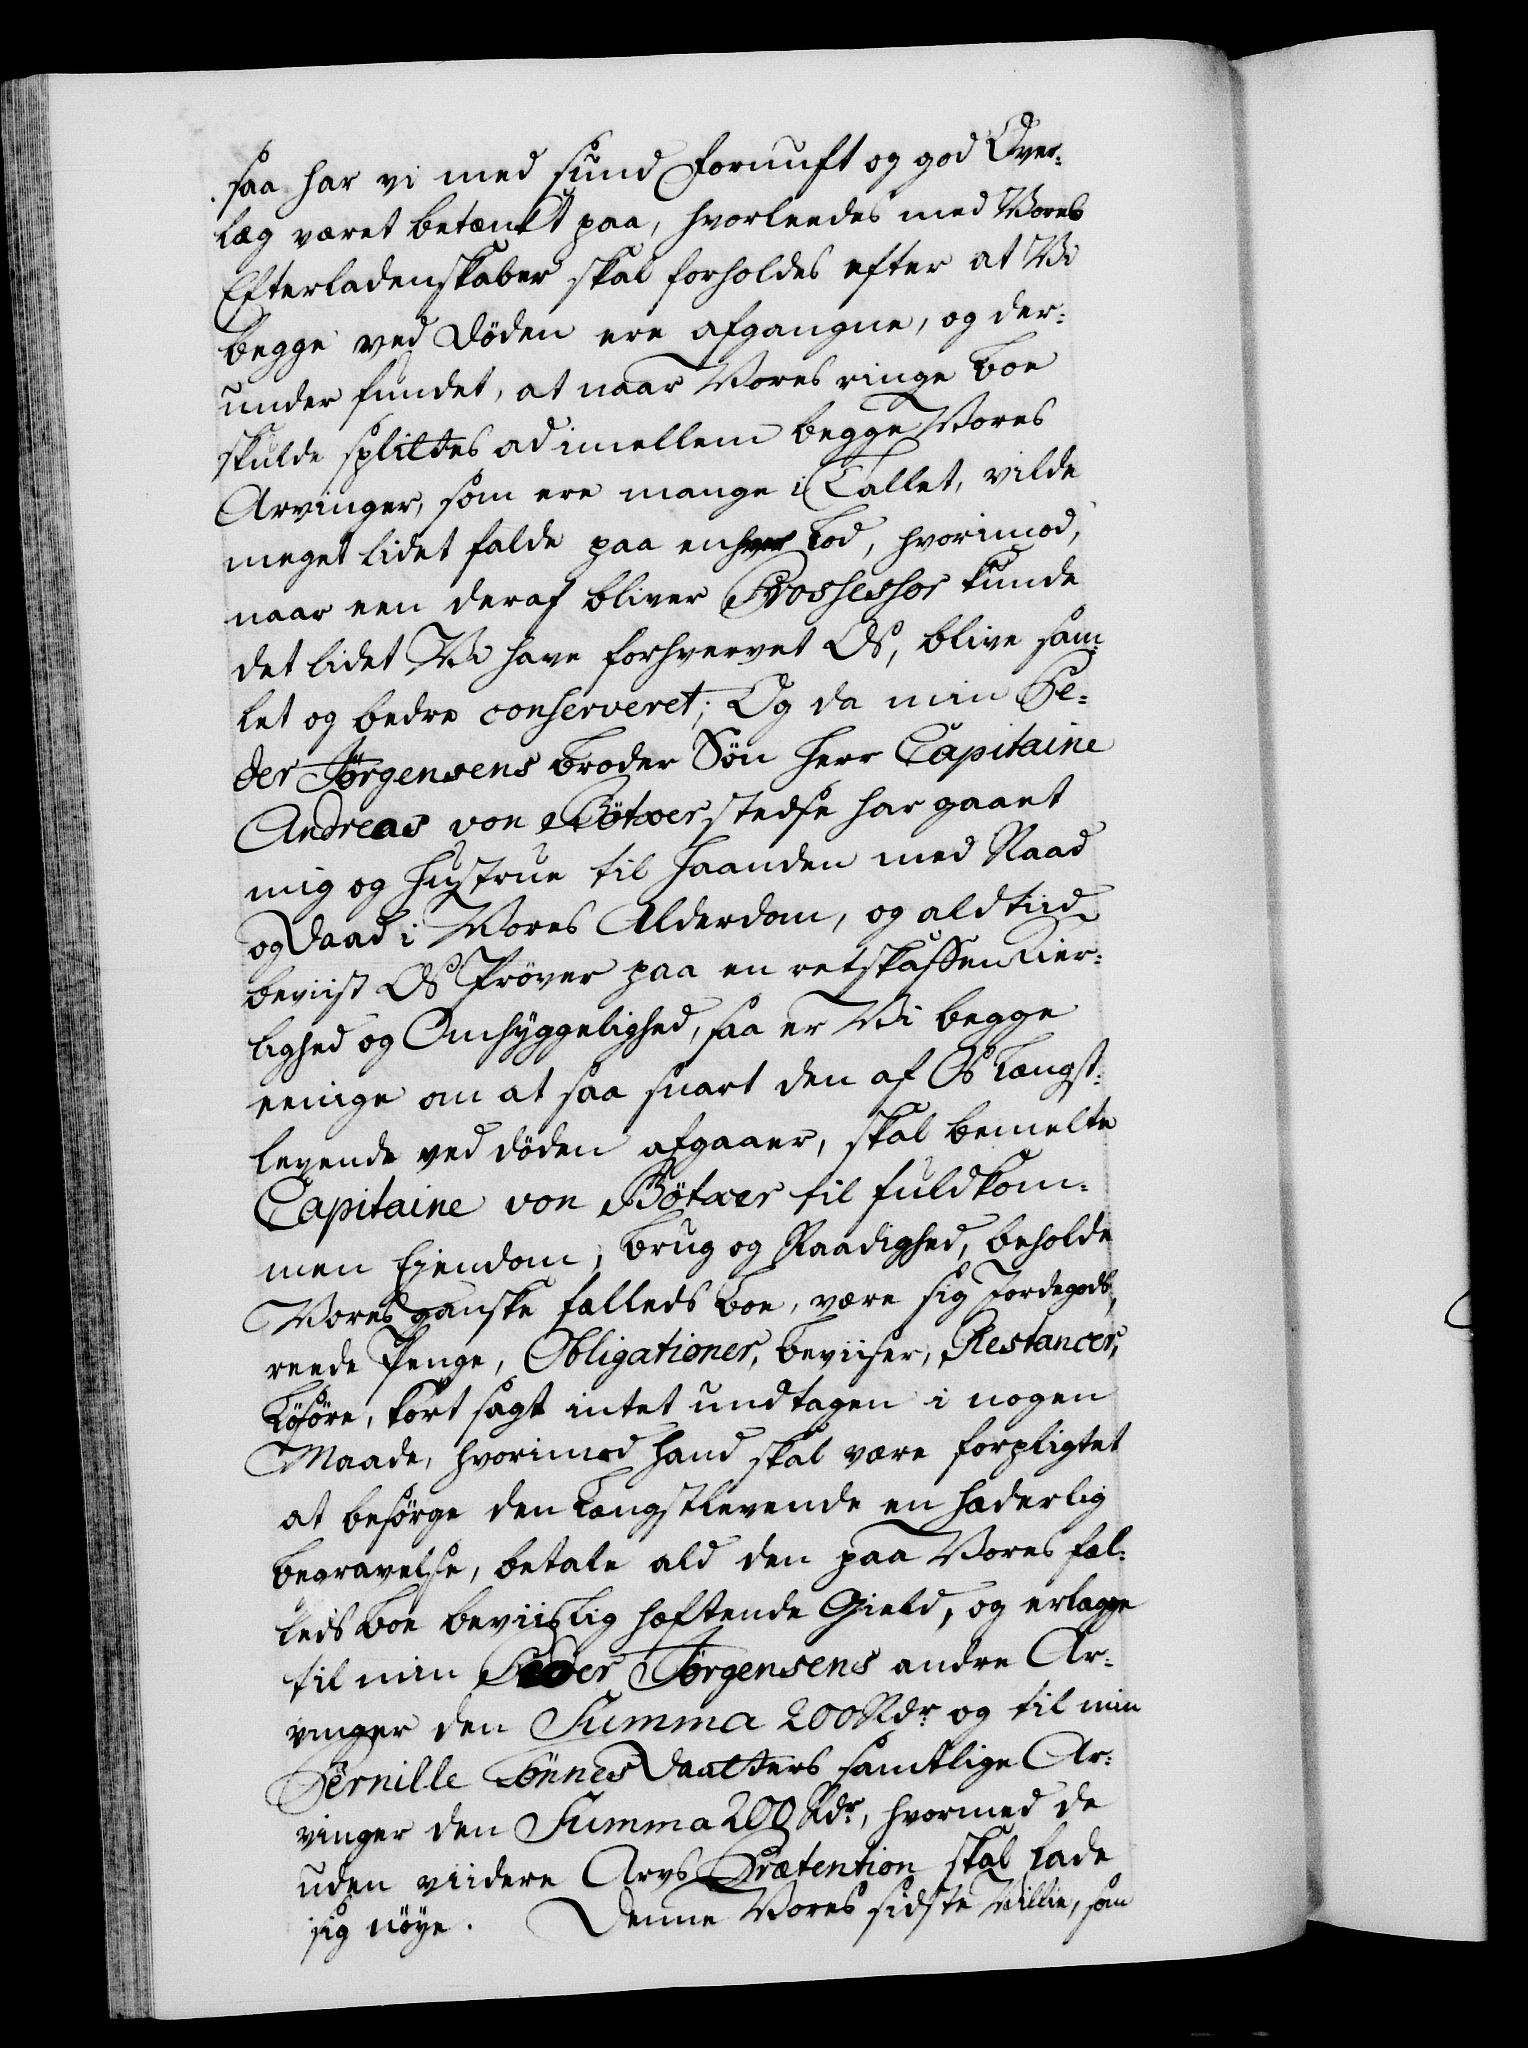 saa har vi med sund Fornuft og god Over-
læg været betænkt paa, hvorleedes med Vores
Efterladenskaber skal forholdes efter at Vi
begge ved Døden ere afgangne, og der-
under fundet, at naar Vores ringe Boe
skulde splittes ad imellem begge Vores
Arvinger, som ere mange i Tallet, vilde
meget lidet falde paa enhver Lod, hvorimod,
naar een deraf bliver Possessor kunde
det lidet Vi have forhvervet Os, blive sam-
let og bedre conserveret; Og da min Pe-
der Jørgensens Broder Søn Herr Capitaine
Andreas von Bötxer stedse har gaaet
mig og Hustrue til Haanden med Raad
og Daad i Vores Alderdom, og aldtiid
beviist Os Prøver paa en retskaffen Kier-
lighed og Omhyggelighed, saa er Vi begge
eenige om at saa snart den af Os Længst-
levende ved døden afgaaer, skal bemelte
Capitaine von Bötxer til fuldkom-
men Ejendom, Brug og Raadighed, beholde
Vores ganske fælleds Boe, være sig Jordegods,
reede Penge, Obligationer, Beviiser, Restancer,
Løsøre, kort sagt intet undtagen i nogen
Maade, hvorimod hand skal være forpligtet
at besørge den Længstlevende en hæderlig
Begravelse, betale ald den paa Vores fæl-
leds Boe beviislig hæftende Gield, og erlægge
til min Peder Jørgensens andre Ar-
vinger den Summa 200 Rdr og til min
Pernille Tønnes Daatters samtlige Ar-
vinger den Summa 200 Rdr, hvormed de
uden viidere Arvs Prætention skal lade
sig nøye. Denne Vores sidste Villie, som